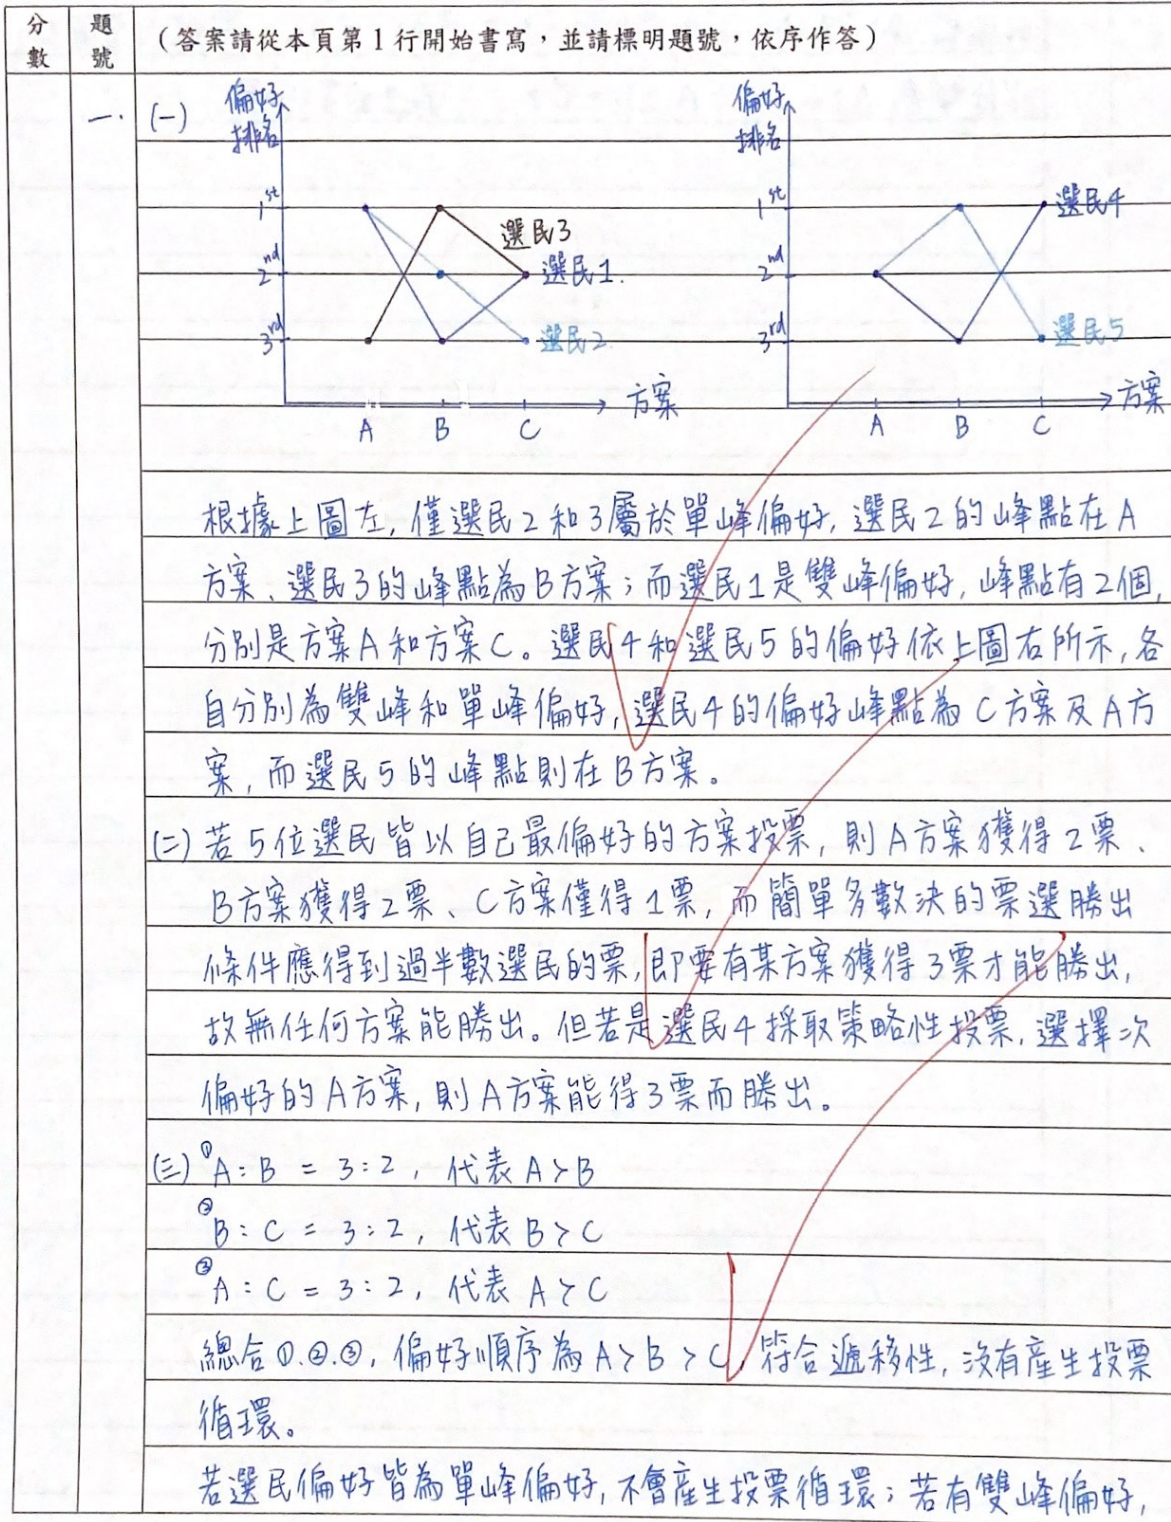 分數 題號 (答案請從本頁第1行開始書寫,並請標明題號,依序作答)
一. (一)
偏好排名
1st
2nd
3rd
選民3
選民1.
選民2
方案
A B C
偏好排名
1st
2nd
3rd
選民4
選民5
方案
A B C
根據上圖左,僅選民2和3屬於單峰偏好,選民2的峰點在A
方案、選民3的峰點為B方案;而選民1是雙峰偏好,峰點有2個,
分別是方案A和方案C。選民4和選民5的偏好依上圖右所示,各
自分別為雙峰和單峰偏好,選民4的偏好峰點為C方案及A方
案,而選民5的峰點則在B方案。
(二) 若5位選民皆以自己最偏好的方案投票,則A方案獲得2票、
B方案獲得2票、C方案僅得1票,而簡單多數決的票選勝出
條件應得到過半數選民的票,即要有某方案獲得3票才能勝出,
故無任何方案能勝出。但若是選民4採取策略性投票,選擇次
偏好的A方案,則A方案能得3票而勝出。
(三) ①A:B = 3:2,代表A>B
②B:C = 3:2,代表B>C
③A:C = 3:2,代表A>C
總合①.②.③,偏好順序為A>B>C,符合遞移性,沒有產生投票
循環。
若選民偏好皆為單峰偏好,不會產生投票循環;若有雙峰偏好,